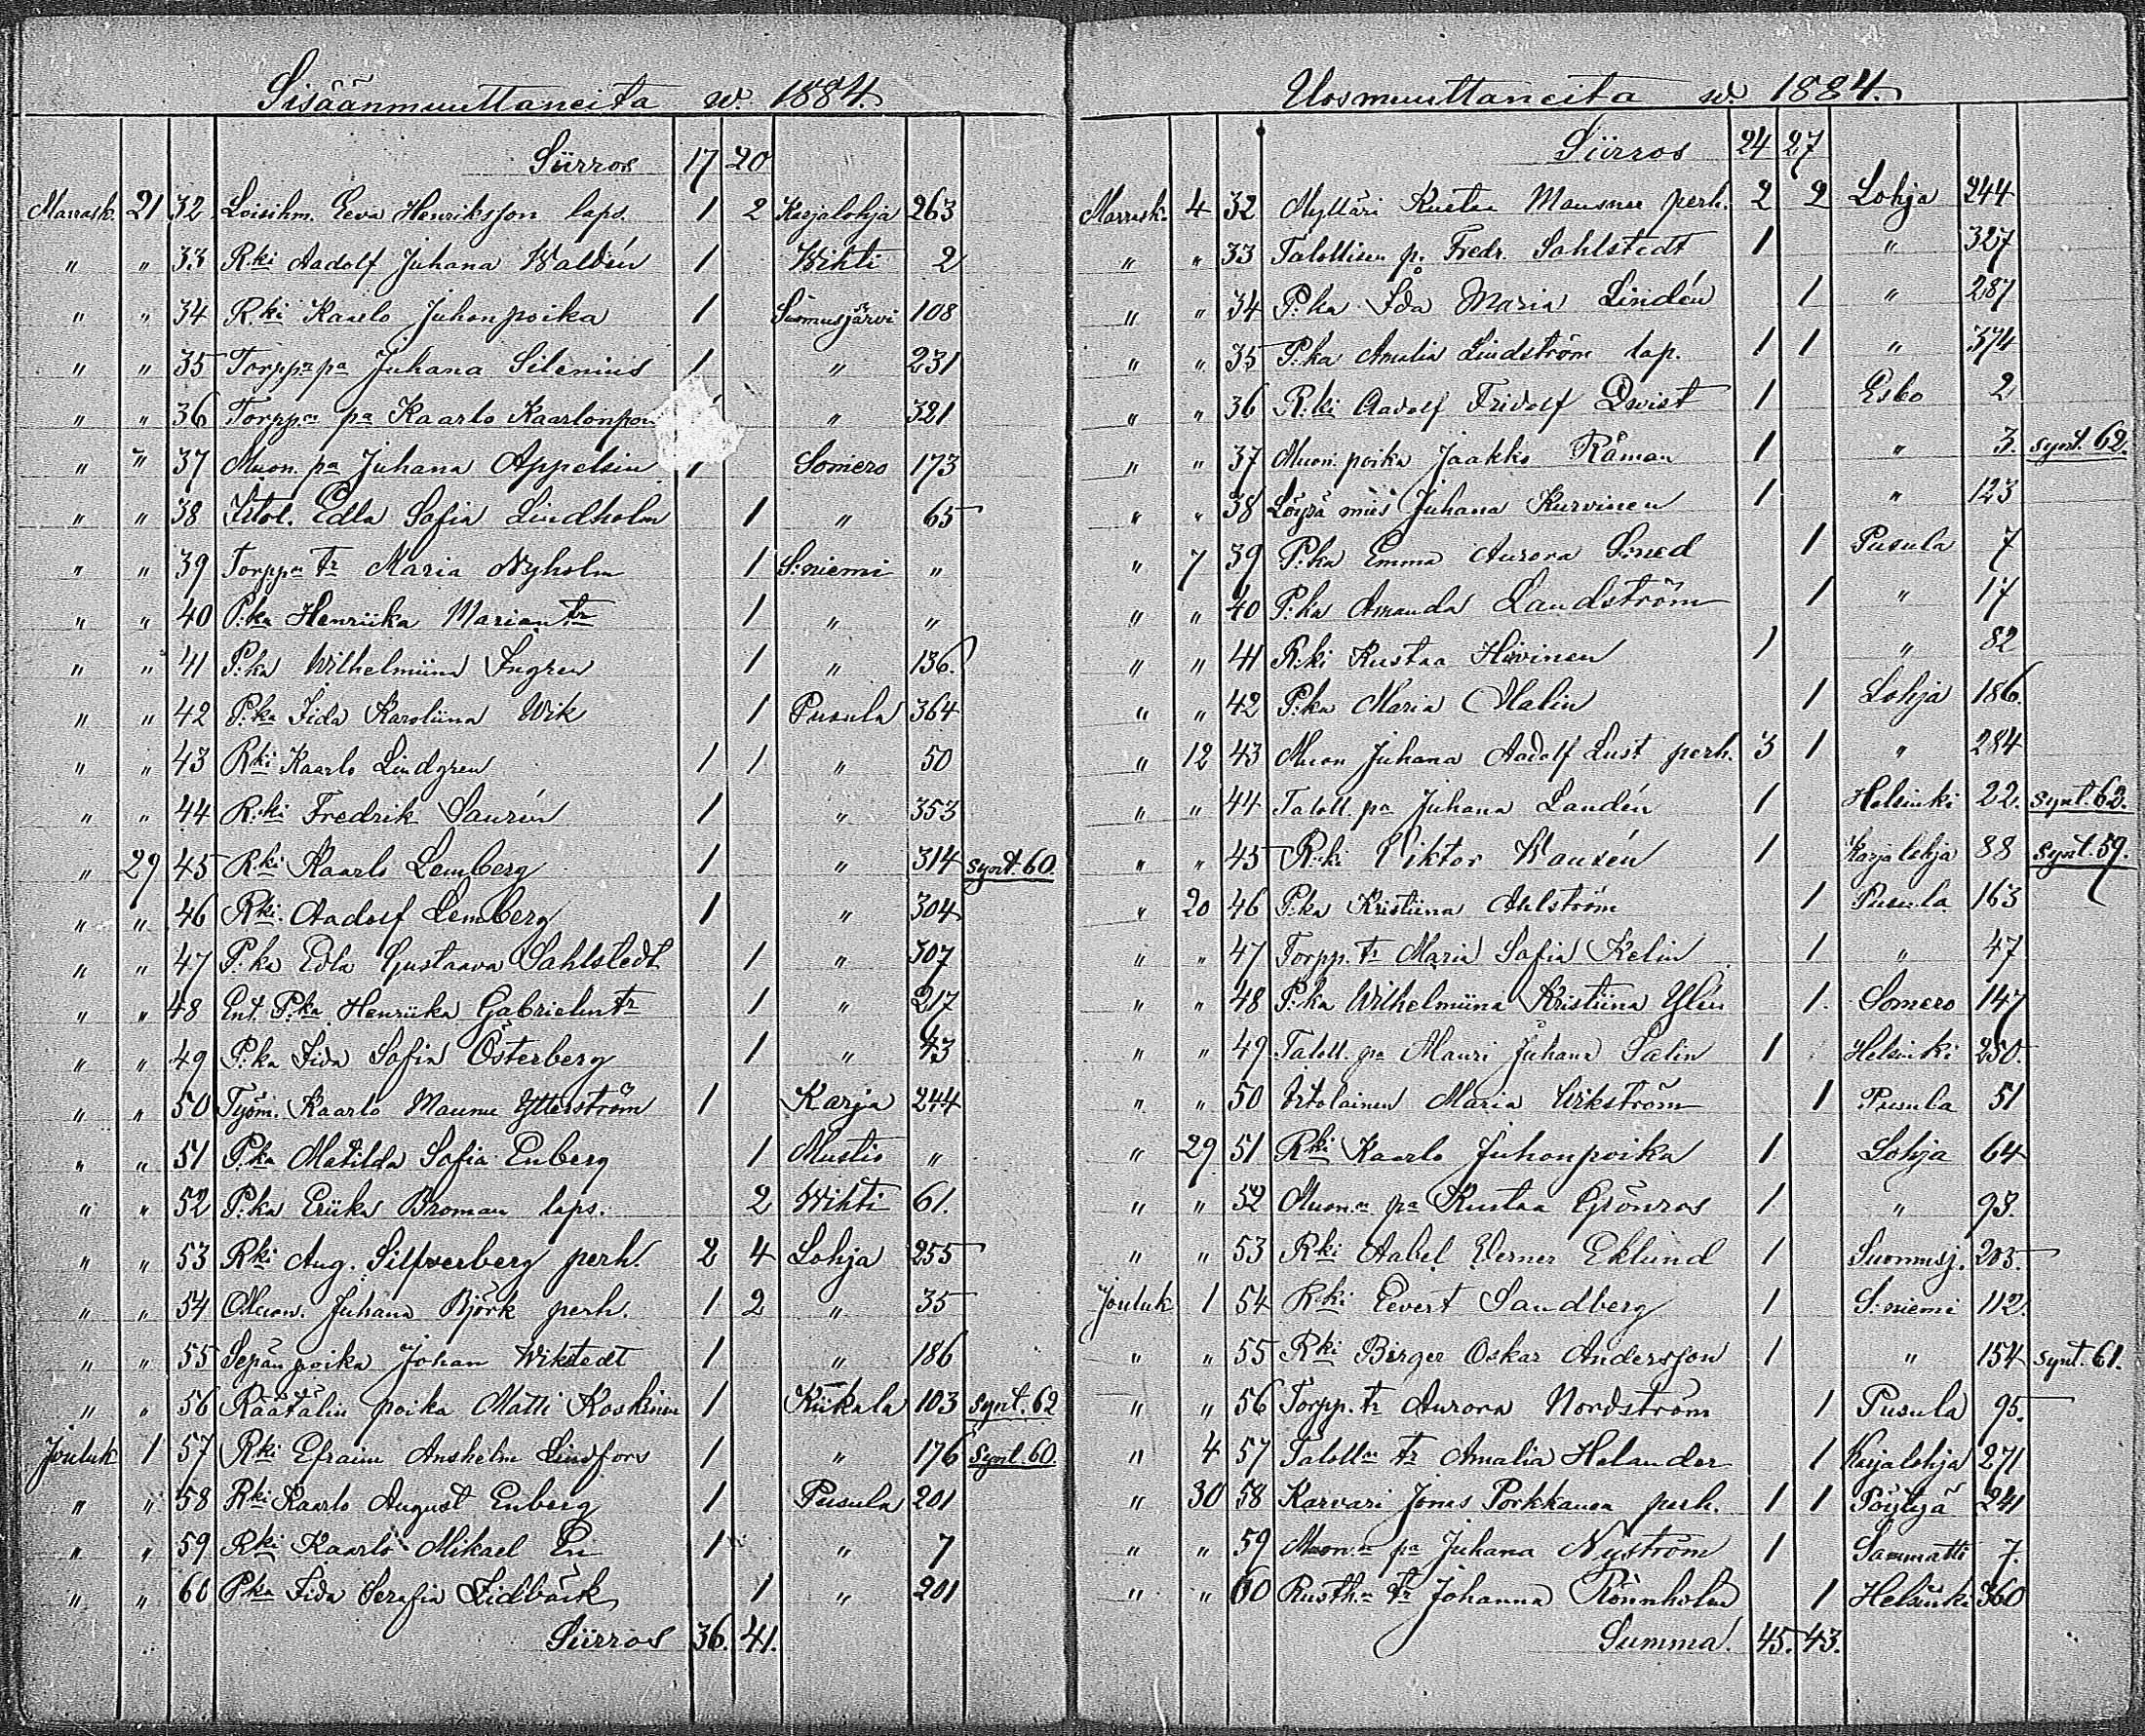 Sisäänmuuttaneita w. 1884.
Siirros 17 20
Marrask. 21 32 Loisihm. Eeva Henriksson laps. 1 2 Karjalohja 263
" " 33 Rki Aadolf Juhana Waldén 1 Wihti 2
" " 34 R.ki Kaarlo Juhonpoika 1 Suomusjärvi 108
" " 35 Torppn pa Juhana Silenius 1 " 231
" " 36 Torppn pa Kaarlo 1 " 321
" " 37 Muon. pa Juhana Appelsin 1 Somero 173
" " 38 Itsl. Edla Sofia Lindholm 1 " 65
" " 39 Torppn tr Maria Nyholm 1 S:niemi "
" " 40 P:ka Henriika Marian tr 1 " "
" " 41 P:ka Wilhelmiina Ingren 1 " 136.
" " 42 P:ka Iida Karoliina Wik 1 Pusula 364
" " 43 Rki Kaarlo Lindgren 1 1 " 50
" " 44 R:ki Fredrik Saurén 1 " 353
" 29 45 Rki Kaarlo Lemberg 1 " 314 synt. 60.
" " 46 Rki. Aadolf Lemberg 1 " 304
" " 47 P:ka Edla Gustaava Sahlstedt 1 " 307
" " 48 Ent. P:ka Henriika Gabrielintr 1 " 217
" " 49 P:ka Iida Sofia Österberg 1 " 43
" " 50 Työm. Kaarlo Maunu Ytterström 1 Karja 244
" " 51 P:ka Matilda Sofia Enberg 1 Mustio "
" " 52 P:ka Eriika Broman laps. 2 Wihti 61.
" " 53 Rki Aug. Silfverberg perh. 2 4 Lohja 255
" " 54 Muon. Juhana Björk perh. 1 2 " 35
" " 55 Sepän poika Johan Wikstedt 1 " 186
" " 56 Räätälin poika Matti Koskinen 1 Kiikala 103 synt. 62
Jouluk 1 57 Rki Efraim Anshelm Lindfors 1 " 176 synt. 60.
" " 58 Rki Kaarlo August Enberg 1 Pusula 201
" " 59 Rki Kaarlo Mikael En 1 " 7
" " 60 Pka Iida Serafia Lidbäck 1 " 201
Siirros 36. 41.
Uosmuuttaneita w. 1884.
Siirros 24 27
Marrask. 4 32 Mylläri Kustaa Mausner perh. 2 2 Lohja 244
" " 33 Talollisen p. Fredr. Sahlstedt 1 " 327
" " 34 P:ka Ida Maria Lindén 1 " 287
" " 35 P:ka Amalia Lindström lap. 1 1 " 374
" " 36 R:ki Aadolf Fridolf Qvist 1 Esbo 2
" " 37 Muon. poika Jaakko Råman 1 " 3. synt. 62.
" " 38 Löysä mies Juhana Kurvinen 1 " 123
" 7 39 P:ka Emma Aurora Smed 1 Pusula 7
" " 40 P:ka Amanda Landström 1 " 17
" " 41 R:ki Kustaa Hirvinen 1 " 82
" " 42 P:ka Maria Malin 1 Lohja 186.
" 12 43 Muon Juhana Aadolf Lust perh. 3 1 " 284
" " 44 Taloll. pa Juhana Landén 1 Helsinki 22. synt. 62.
" " 45 R:ki Viktor Wausén 1 Karjalohja 88 synt. 59.
" 20 46 P:ka Kristiina Ahlström 1 Pusula 163
" " 47 Torpp. tr Maria Sofia Kelin 1 " 47
" " 48 P:ka Wilhelmiina Kristiina Ylén 1. Somero 147
" " 49 Taloll. pa Mauri Juhana Salin 1 Helsinki 250.
" " 50 Irtolainen Maria Wikström 1 Pusula 51
" 29. 51 Rki Kaarlo Juhonpoika 1 Lohja 64
" " 52 Muon.n pa Kustaa Grönros 1 " 93.
" " 53 Rki Aabel Verner Eklund 1 Suomusj. 203.
Jouluk 1 54 Rki Eevert Sandberg 1 S:niemi 112.
" " 55 Rki Birger Oskar Andersson 1 " 154 synt. 61.
" " 56 Torpp. tr Aurora Nordström 1 Pusula 95.
" 4 57 Talolln tr Amalia Helander 1 Karjalohja 271
" 30 58 Karvari Jonas Porkkanen perh. 1 1 Pöytyä 241
" " 59 Muon.n pa Juhana Nyström 1 Sammatti 7.
" " 60 Rusth.n tr Johanna Rönnholm 1 Helsinki 360
Summa. 45. 43.